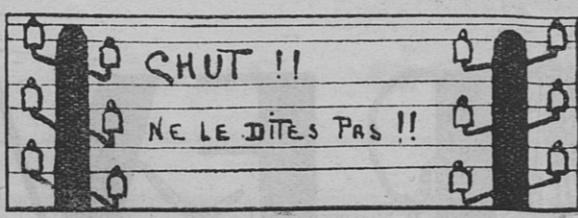 CHUT !!
NE LE DITES PAS !!